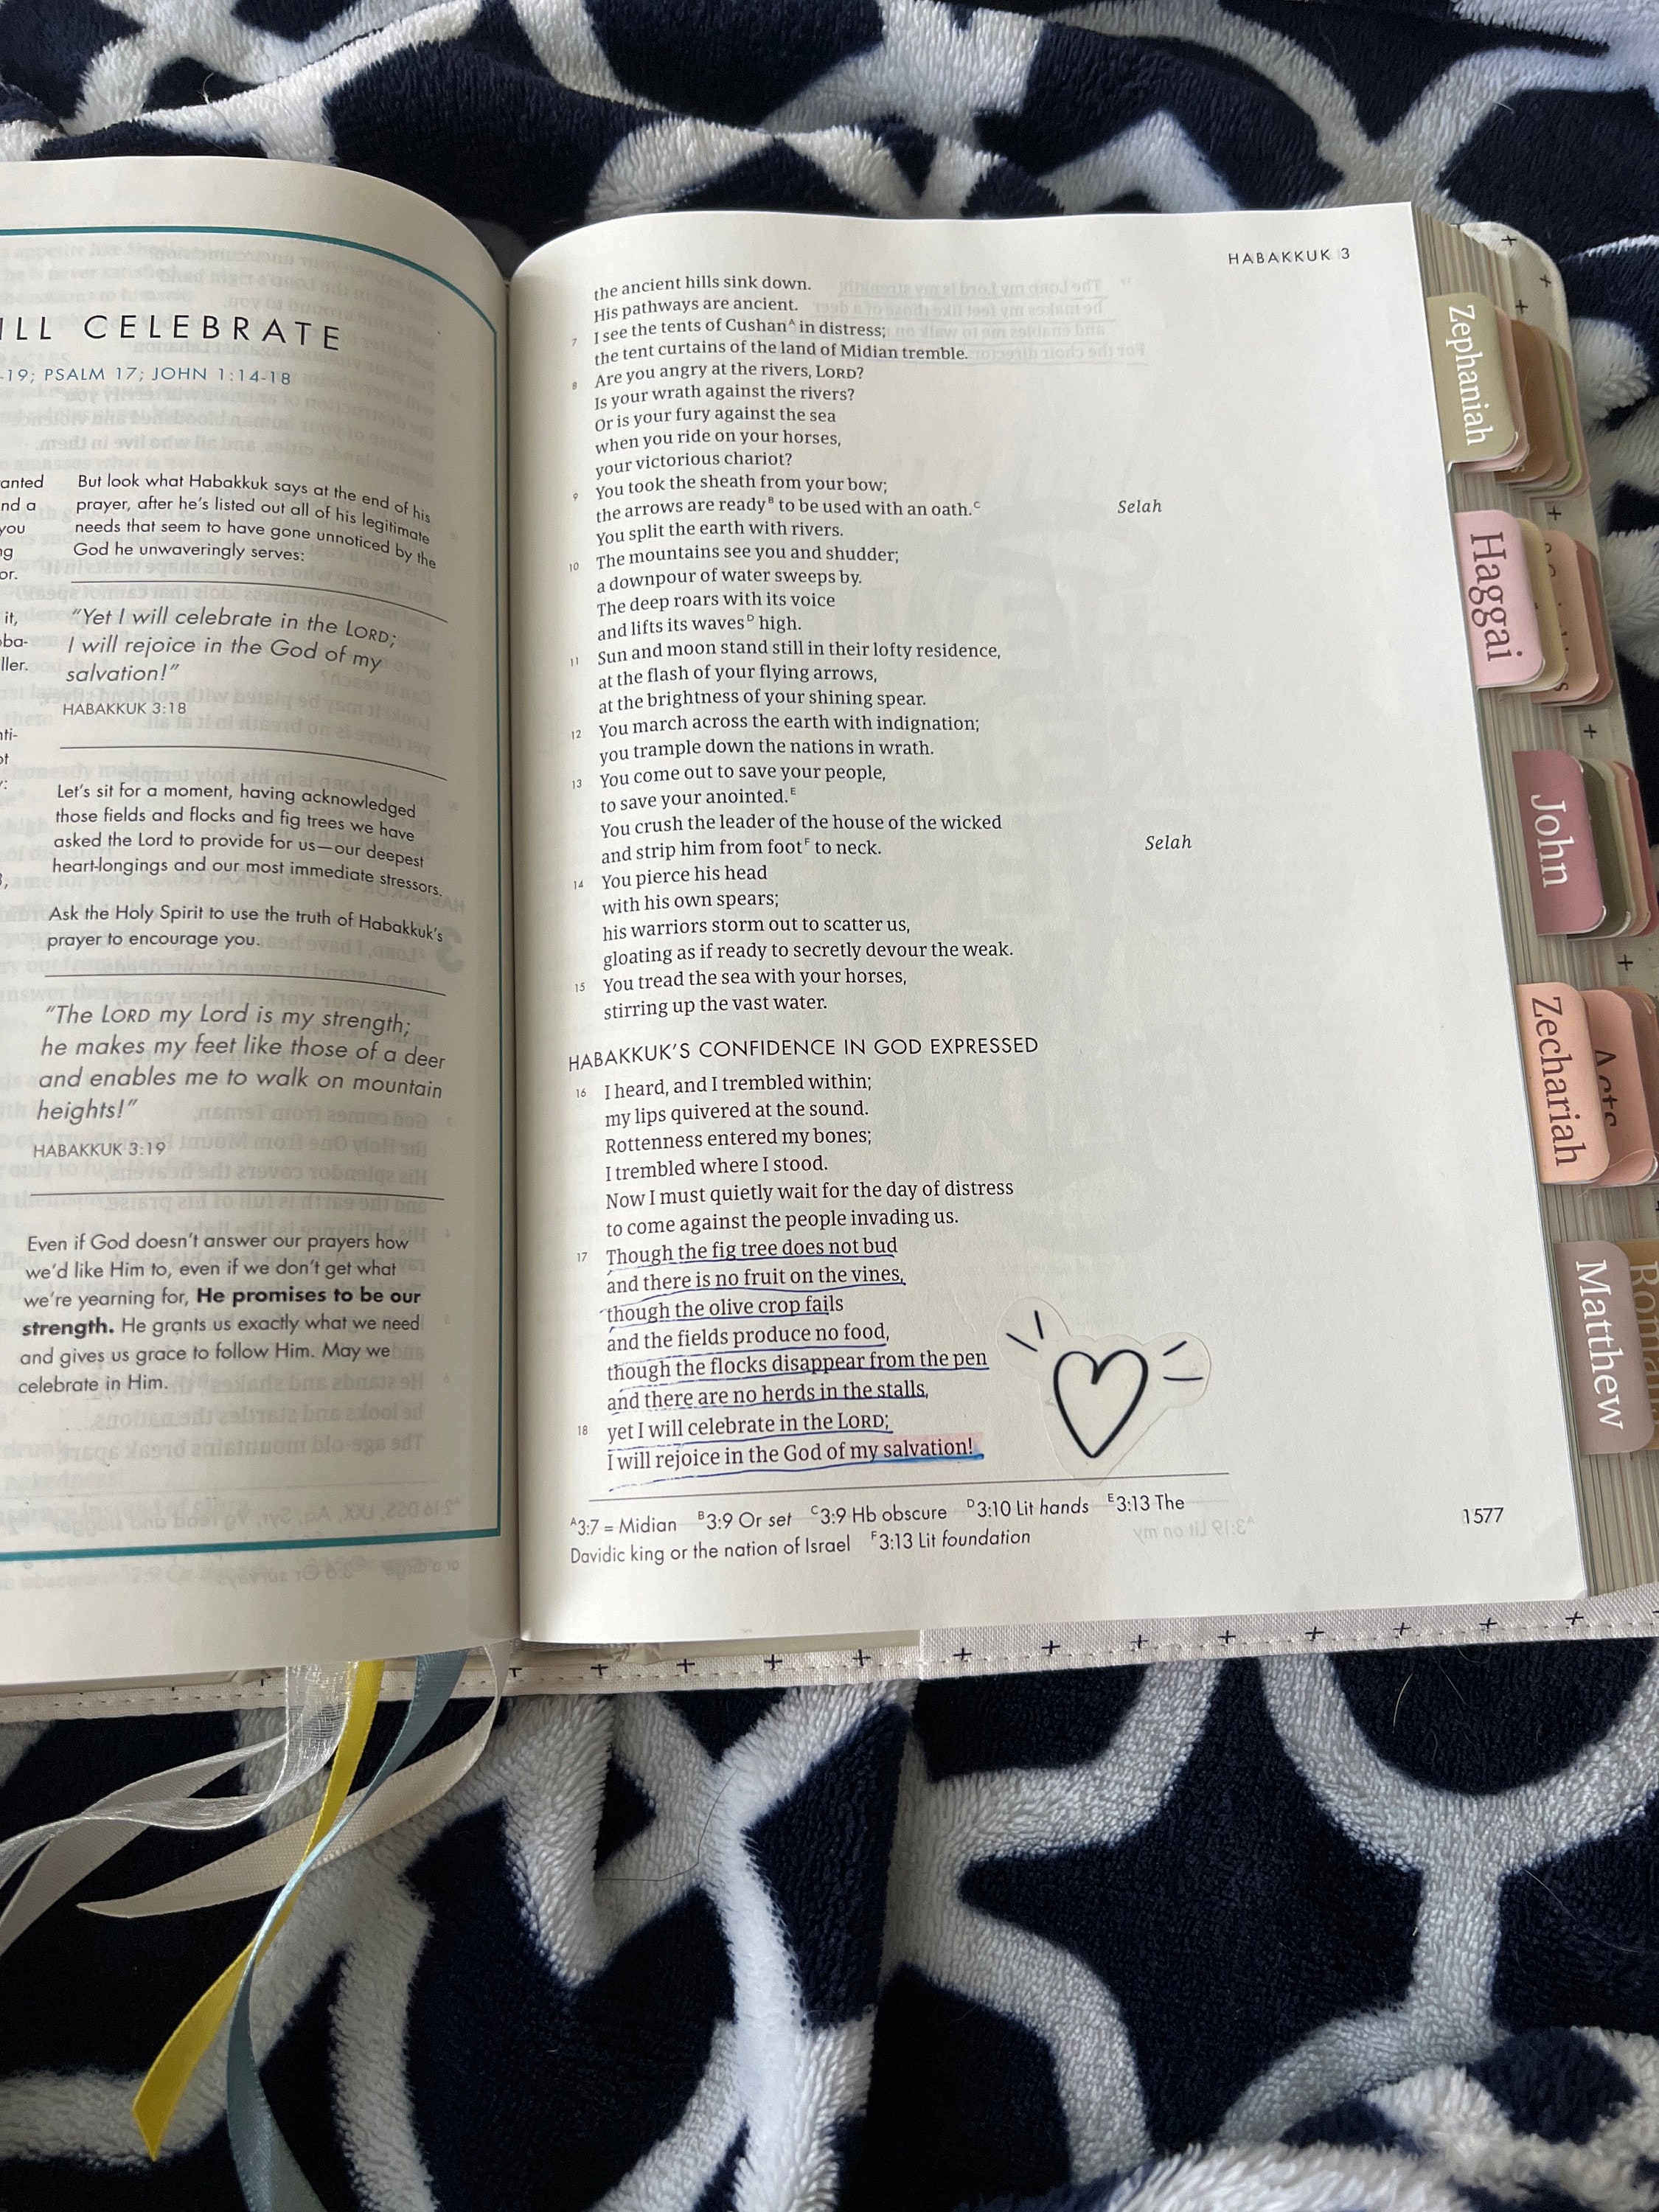 ILL CELEBRATE
-19; PSALM 17; JOHN 1:14-18
anted
nd a
you
ng
or.
it,
ba-
ller.
nti-
ot
But look what Habakkuk says at the end of his
prayer, after he's listed out all of his legitimate
needs that seem to have gone unnoticed by the
God he unwaveringly serves:
"Yet I will celebrate in the LORD;
I will rejoice in the God of my
salvation!"
HABAKKUK 3:18
Let's sit for a moment, having acknowledged
those fields and flocks and fig trees we have
asked the Lord to provide for us—our deepest
heart-longings and our most immediate stressors.
Ask the Holy Spirit to use the truth of Habakkuk's
prayer to encourage you.
"The LORD my Lord is my strength;
he makes my feet like those of a deer
and enables me to walk on mountain
heights!"
HABAKKUK 3:19
Even if God doesn't answer our prayers how
we'd like Him to, even if we don't get what
we're yearning for, He promises to be our
strength. He grants us exactly what we need
and gives us grace to follow Him. May we
celebrate in Him.
HABAKKUK 3
the ancient hills sink down.
His pathways are ancient.
7 I see the tents of Cushan^A in distress;
the tent curtains of the land of Midian tremble.
8 Are you angry at the rivers, LORD?
Is your wrath against the rivers?
Or is your fury against the sea
when you ride on your horses,
your victorious chariot?
9 You took the sheath from your bow;
the arrows are ready^B to be used with an oath.^C Selah
You split the earth with rivers.
10 The mountains see you and shudder;
a downpour of water sweeps by.
The deep roars with its voice
and lifts its waves^D high.
11 Sun and moon stand still in their lofty residence,
at the flash of your flying arrows,
at the brightness of your shining spear.
12 You march across the earth with indignation;
you trample down the nations in wrath.
13 You come out to save your people,
to save your anointed.^E
You crush the leader of the house of the wicked
and strip him from foot^F to neck. Selah
14 You pierce his head
with his own spears;
his warriors storm out to scatter us,
gloating as if ready to secretly devour the weak.
15 You tread the sea with your horses,
stirring up the vast water.
HABAKKUK'S CONFIDENCE IN GOD EXPRESSED
16 I heard, and I trembled within;
my lips quivered at the sound.
Rottenness entered my bones;
I trembled where I stood.
Now I must quietly wait for the day of distress
to come against the people invading us.
17 Though the fig tree does not bud
and there is no fruit on the vines,
though the olive crop fails
and the fields produce no food,
though the flocks disappear from the pen
and there are no herds in the stalls,
18 yet I will celebrate in the LORD;
I will rejoice in the God of my salvation!
^A3:7 = Midian ^B3:9 Or set ^C3:9 Hb obscure ^D3:10 Lit hands ^E3:13 The
Davidic king or the nation of Israel ^F3:13 Lit foundation
1577
Zephaniah
Haggai
John
Zechariah
Acts
Matthew